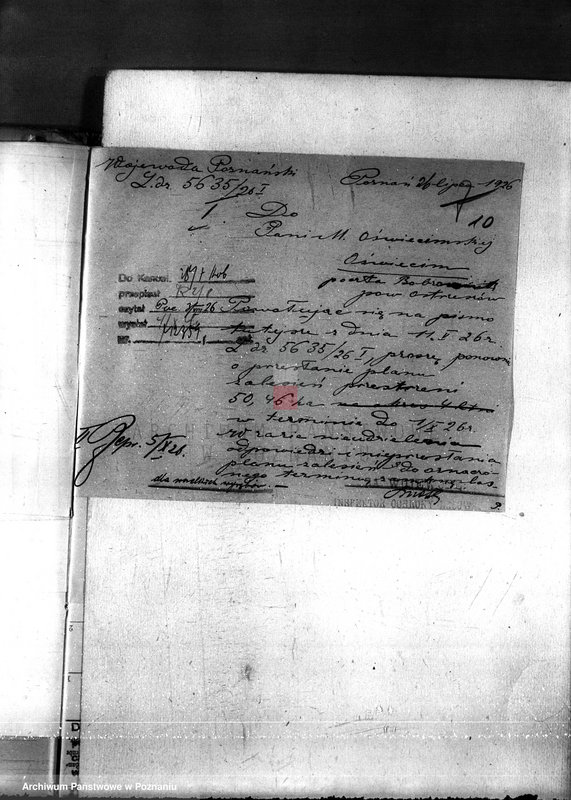 Wojewoda Poznański
L.dz. 5635/26 I
Poznań 26 lipca 1926
1
10
Do
Pani M. Oświecimskiej
Oświecim
poczta
pow Ostrzeszów
Do Kancel.
przepisał
czytał
wysłał
Powołując się na pismo
tutejsze z dnia 11.V 26r.
L.dz. 5635/26 I, proszę ponownie
o przesłanie planu
zalesień przestrzeni
50,46 ha
w terminie do 1/X 26r.
W razie nieudzielenia
odpowiedzi i nieprzesłania
planu zalesień do oznaczo
nego terminu
II Repr. 5/XI 26.
Archiwum Państwowe w Poznaniu